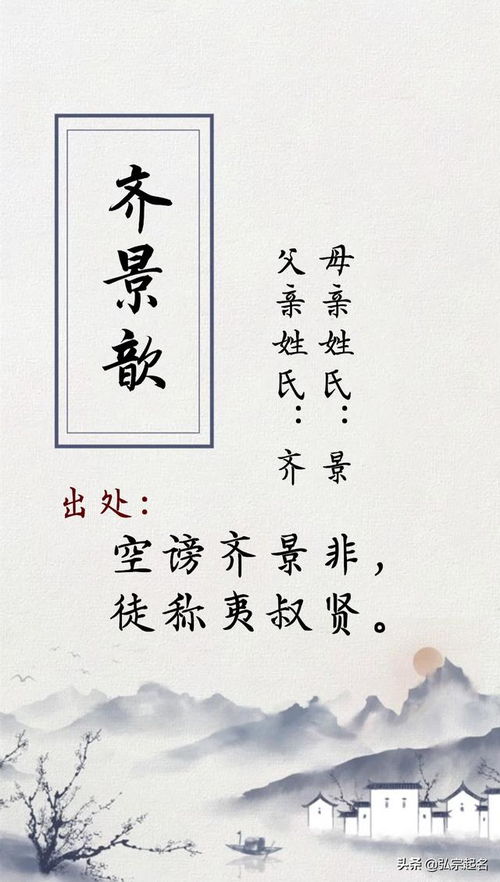 齐景歆
母亲姓氏：景
父亲姓氏：齐
出处：
空谤齐景非，
徒称夷叔贤。
头条@弘宗起名